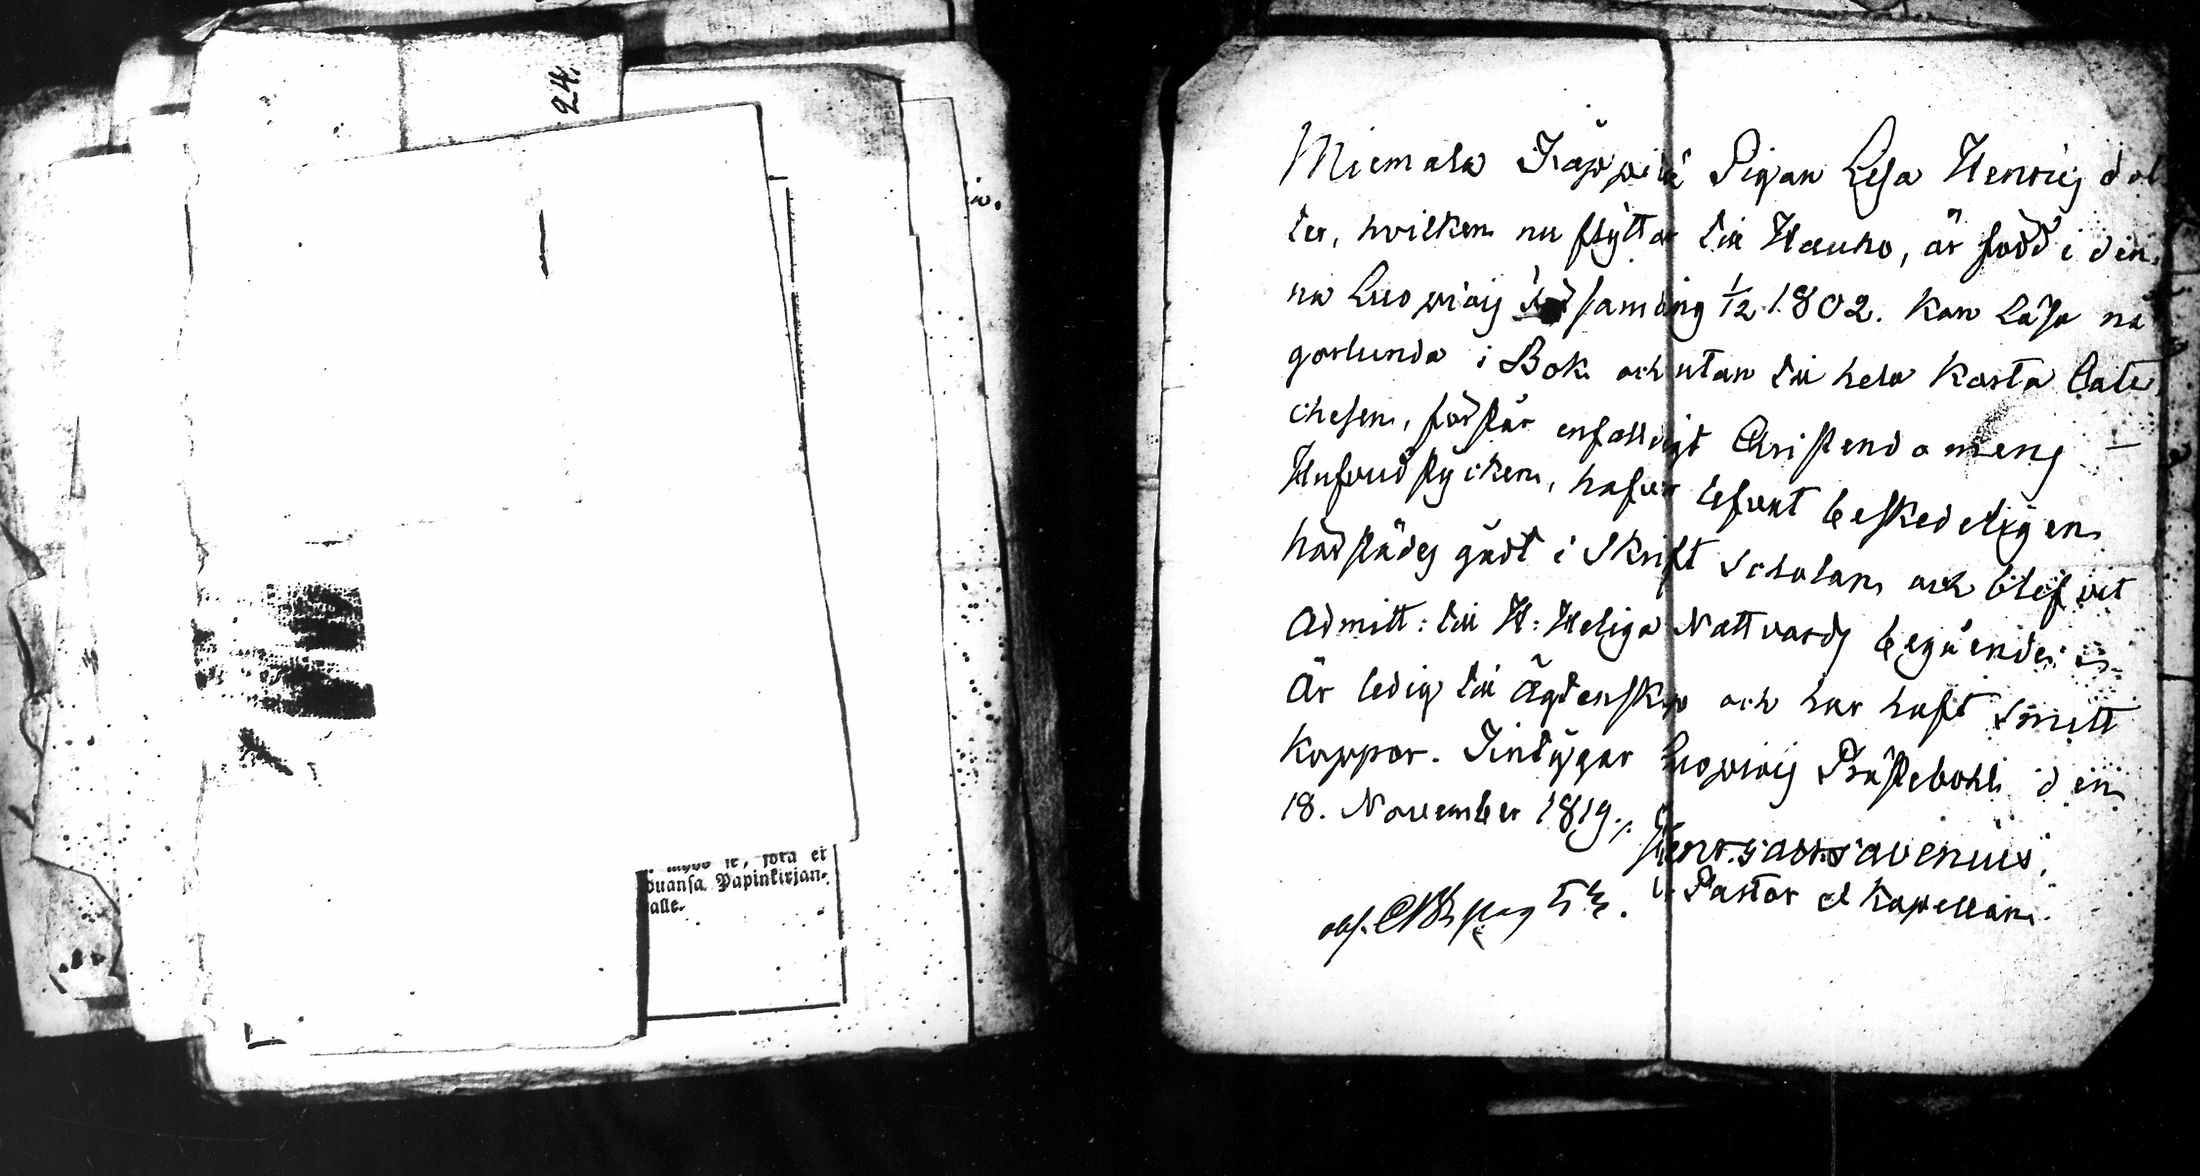 24.
mybb te, jota ei
ouansa Papinkirjan-
alle.
Miemala Käppilä Pigan Lesa Henrics dot
ter, hvilken nu flyttar till Hauho, är född i den-
na Luopiois församling 1/12 1802. Kan läsa nå
gorlunda i Bok och utan till hela korta Cate
chesen, förstår enfalldigt Christendomens
Hufvud stycken, hafver lefvat beskedeligen
härstädes gådt i Skrift Scholan och blefvit
Admitt: till H: Heliga Nattvards begående
Är ledig till Ägtenskap och har haft smitt
koppor. Intygar Luopiois Prästebohl den
18. November 1819.
avenius,
v. Pastor et Kapellan.